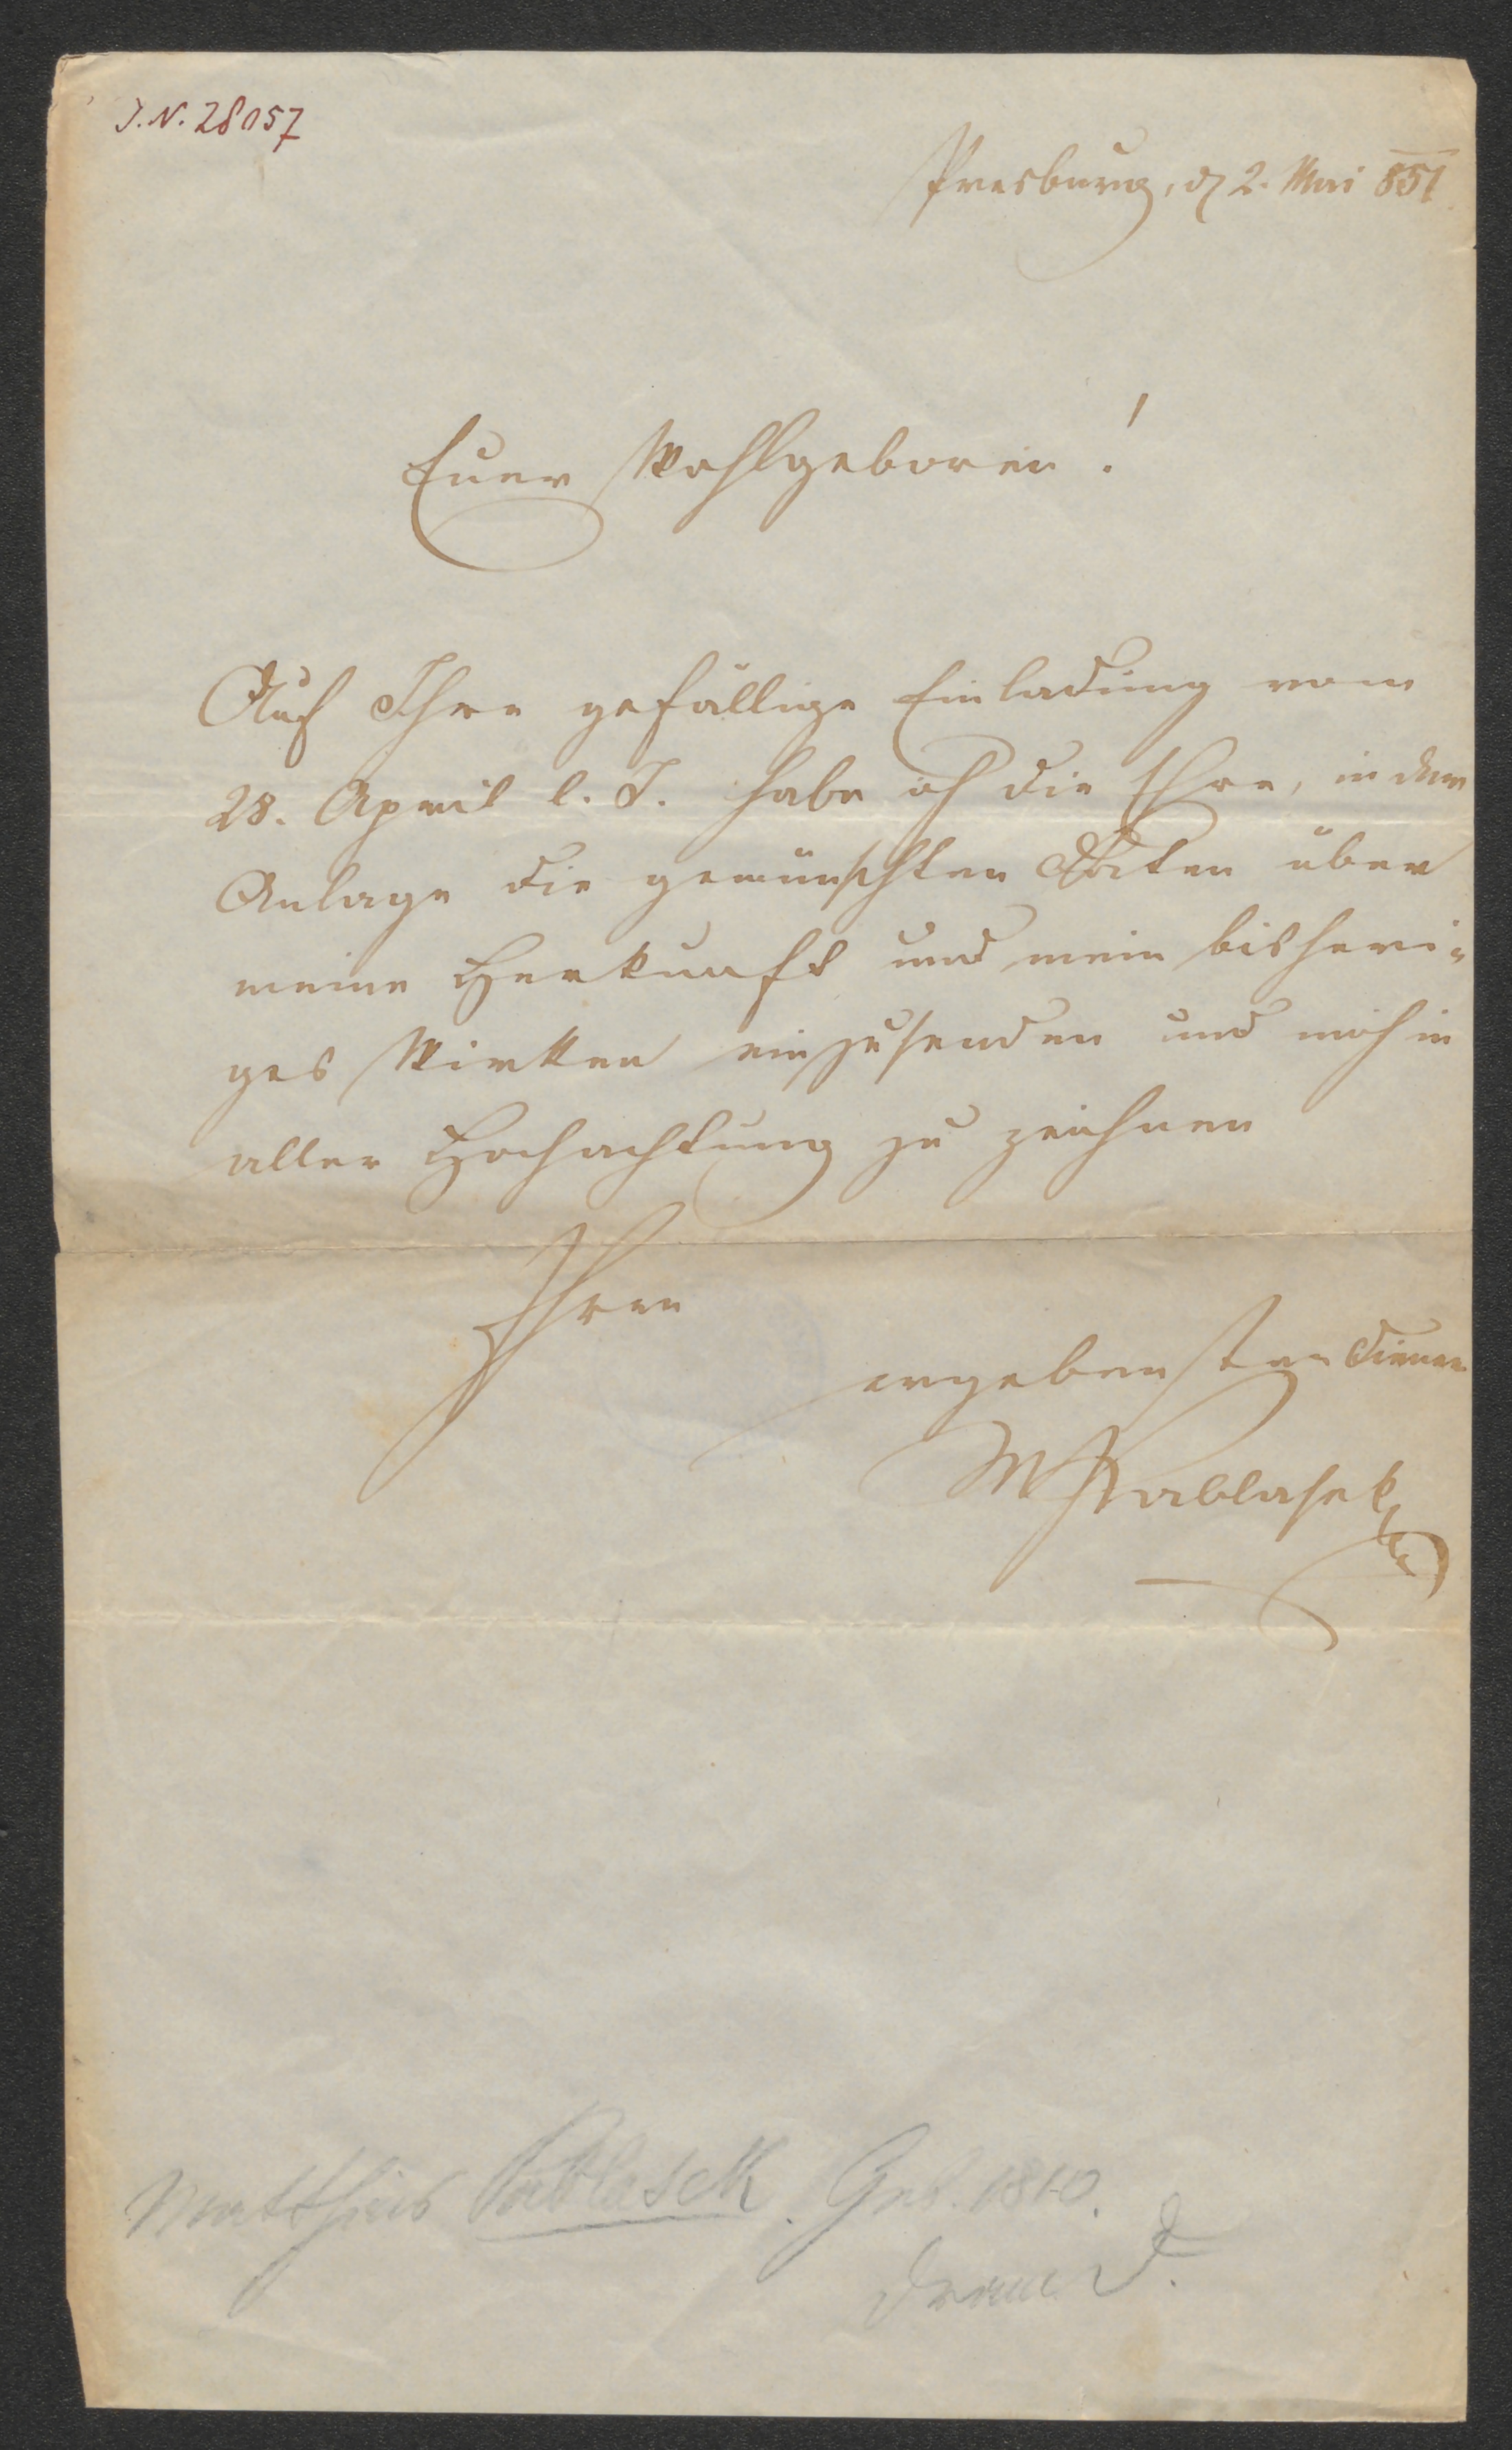 J. N. 28057
Presburg, d 2. Mai 851
Euer Wohlgeboren!
Auf Ihre gefällige Einladung vom
28. April l. J. habe ich die Ehre, in der
Anlage die gewünschten Daten über
meine Herkunft und mein bisheri-
ges Wirken einzusenden und mich in
aller Hochachtung zu zeichnen
Ihren
ergebensten Diener
M Pablasek
Matthias Pablasek. Geb. 1810.
Dram. D.